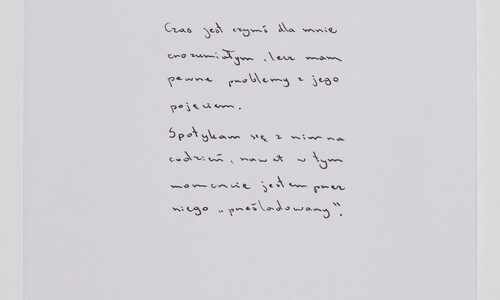 Czas jest czymś dla mnie
zrozumiałym, lecz mam
pewne problemy z jego
pojęciem.
Spotykam się z nim na
codzień, nawet w tym
momencie jestem przez
niego „prześladowany”.